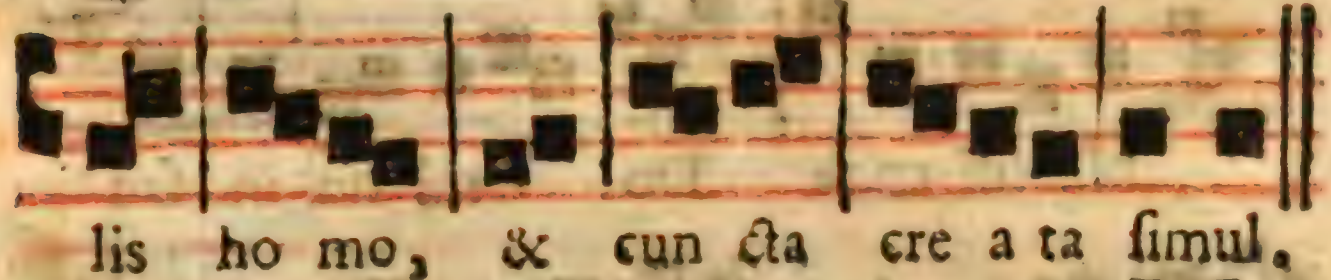 lis ho mo, & cun cta cre a ta ſimul.